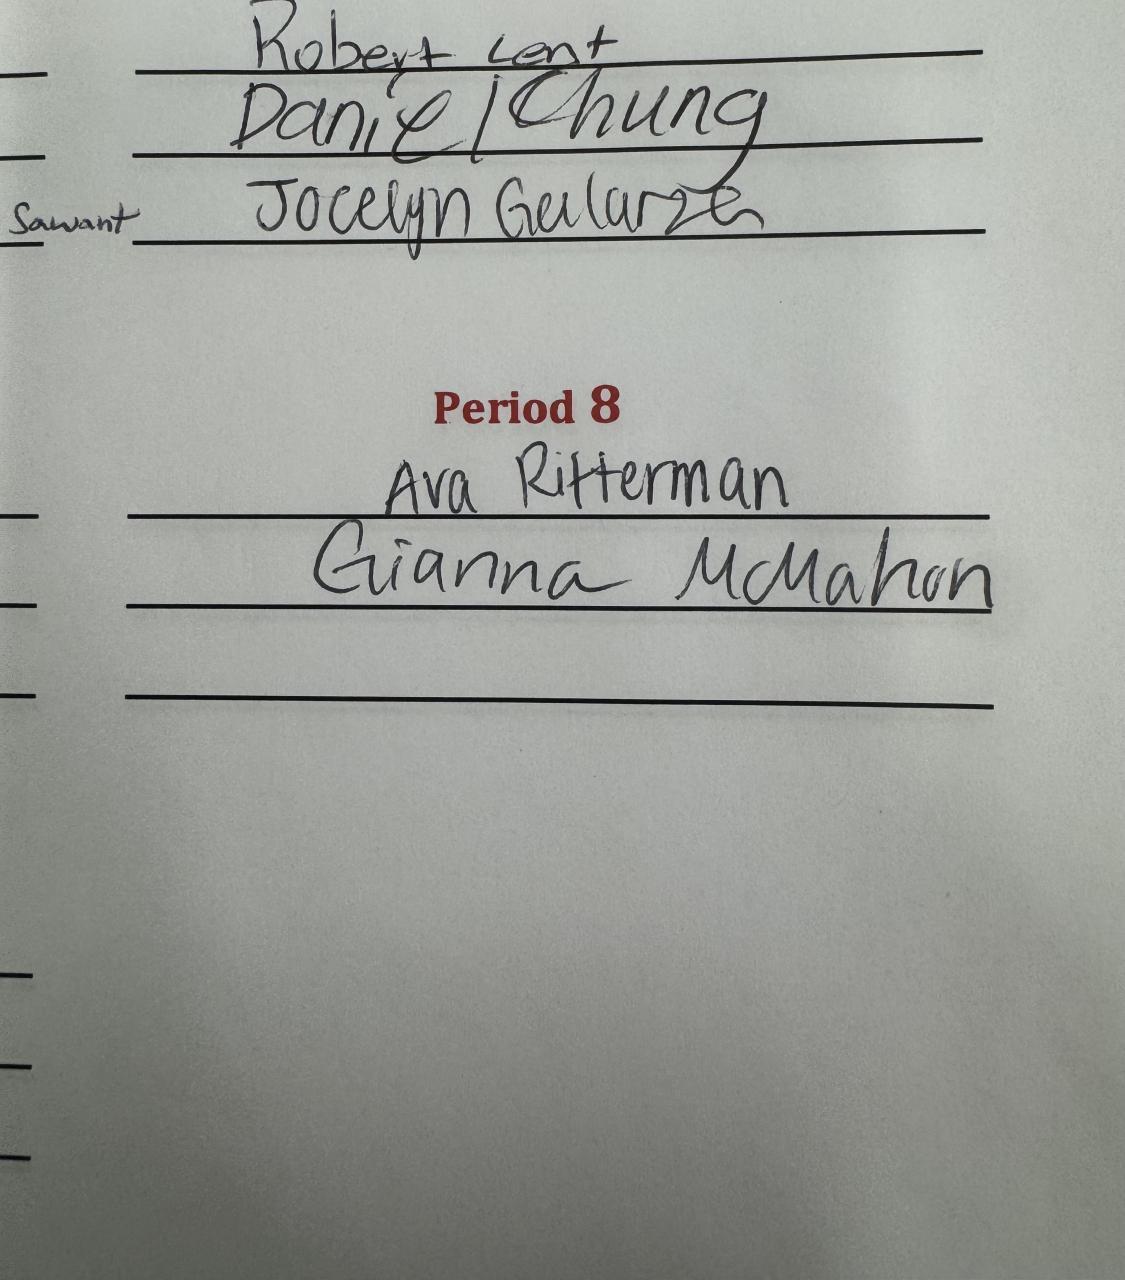 Robert Lent
Daniel Chung
Sawant
Jocelyn Gularza
Period 8
Ava Ritterman
Gianna McMahon